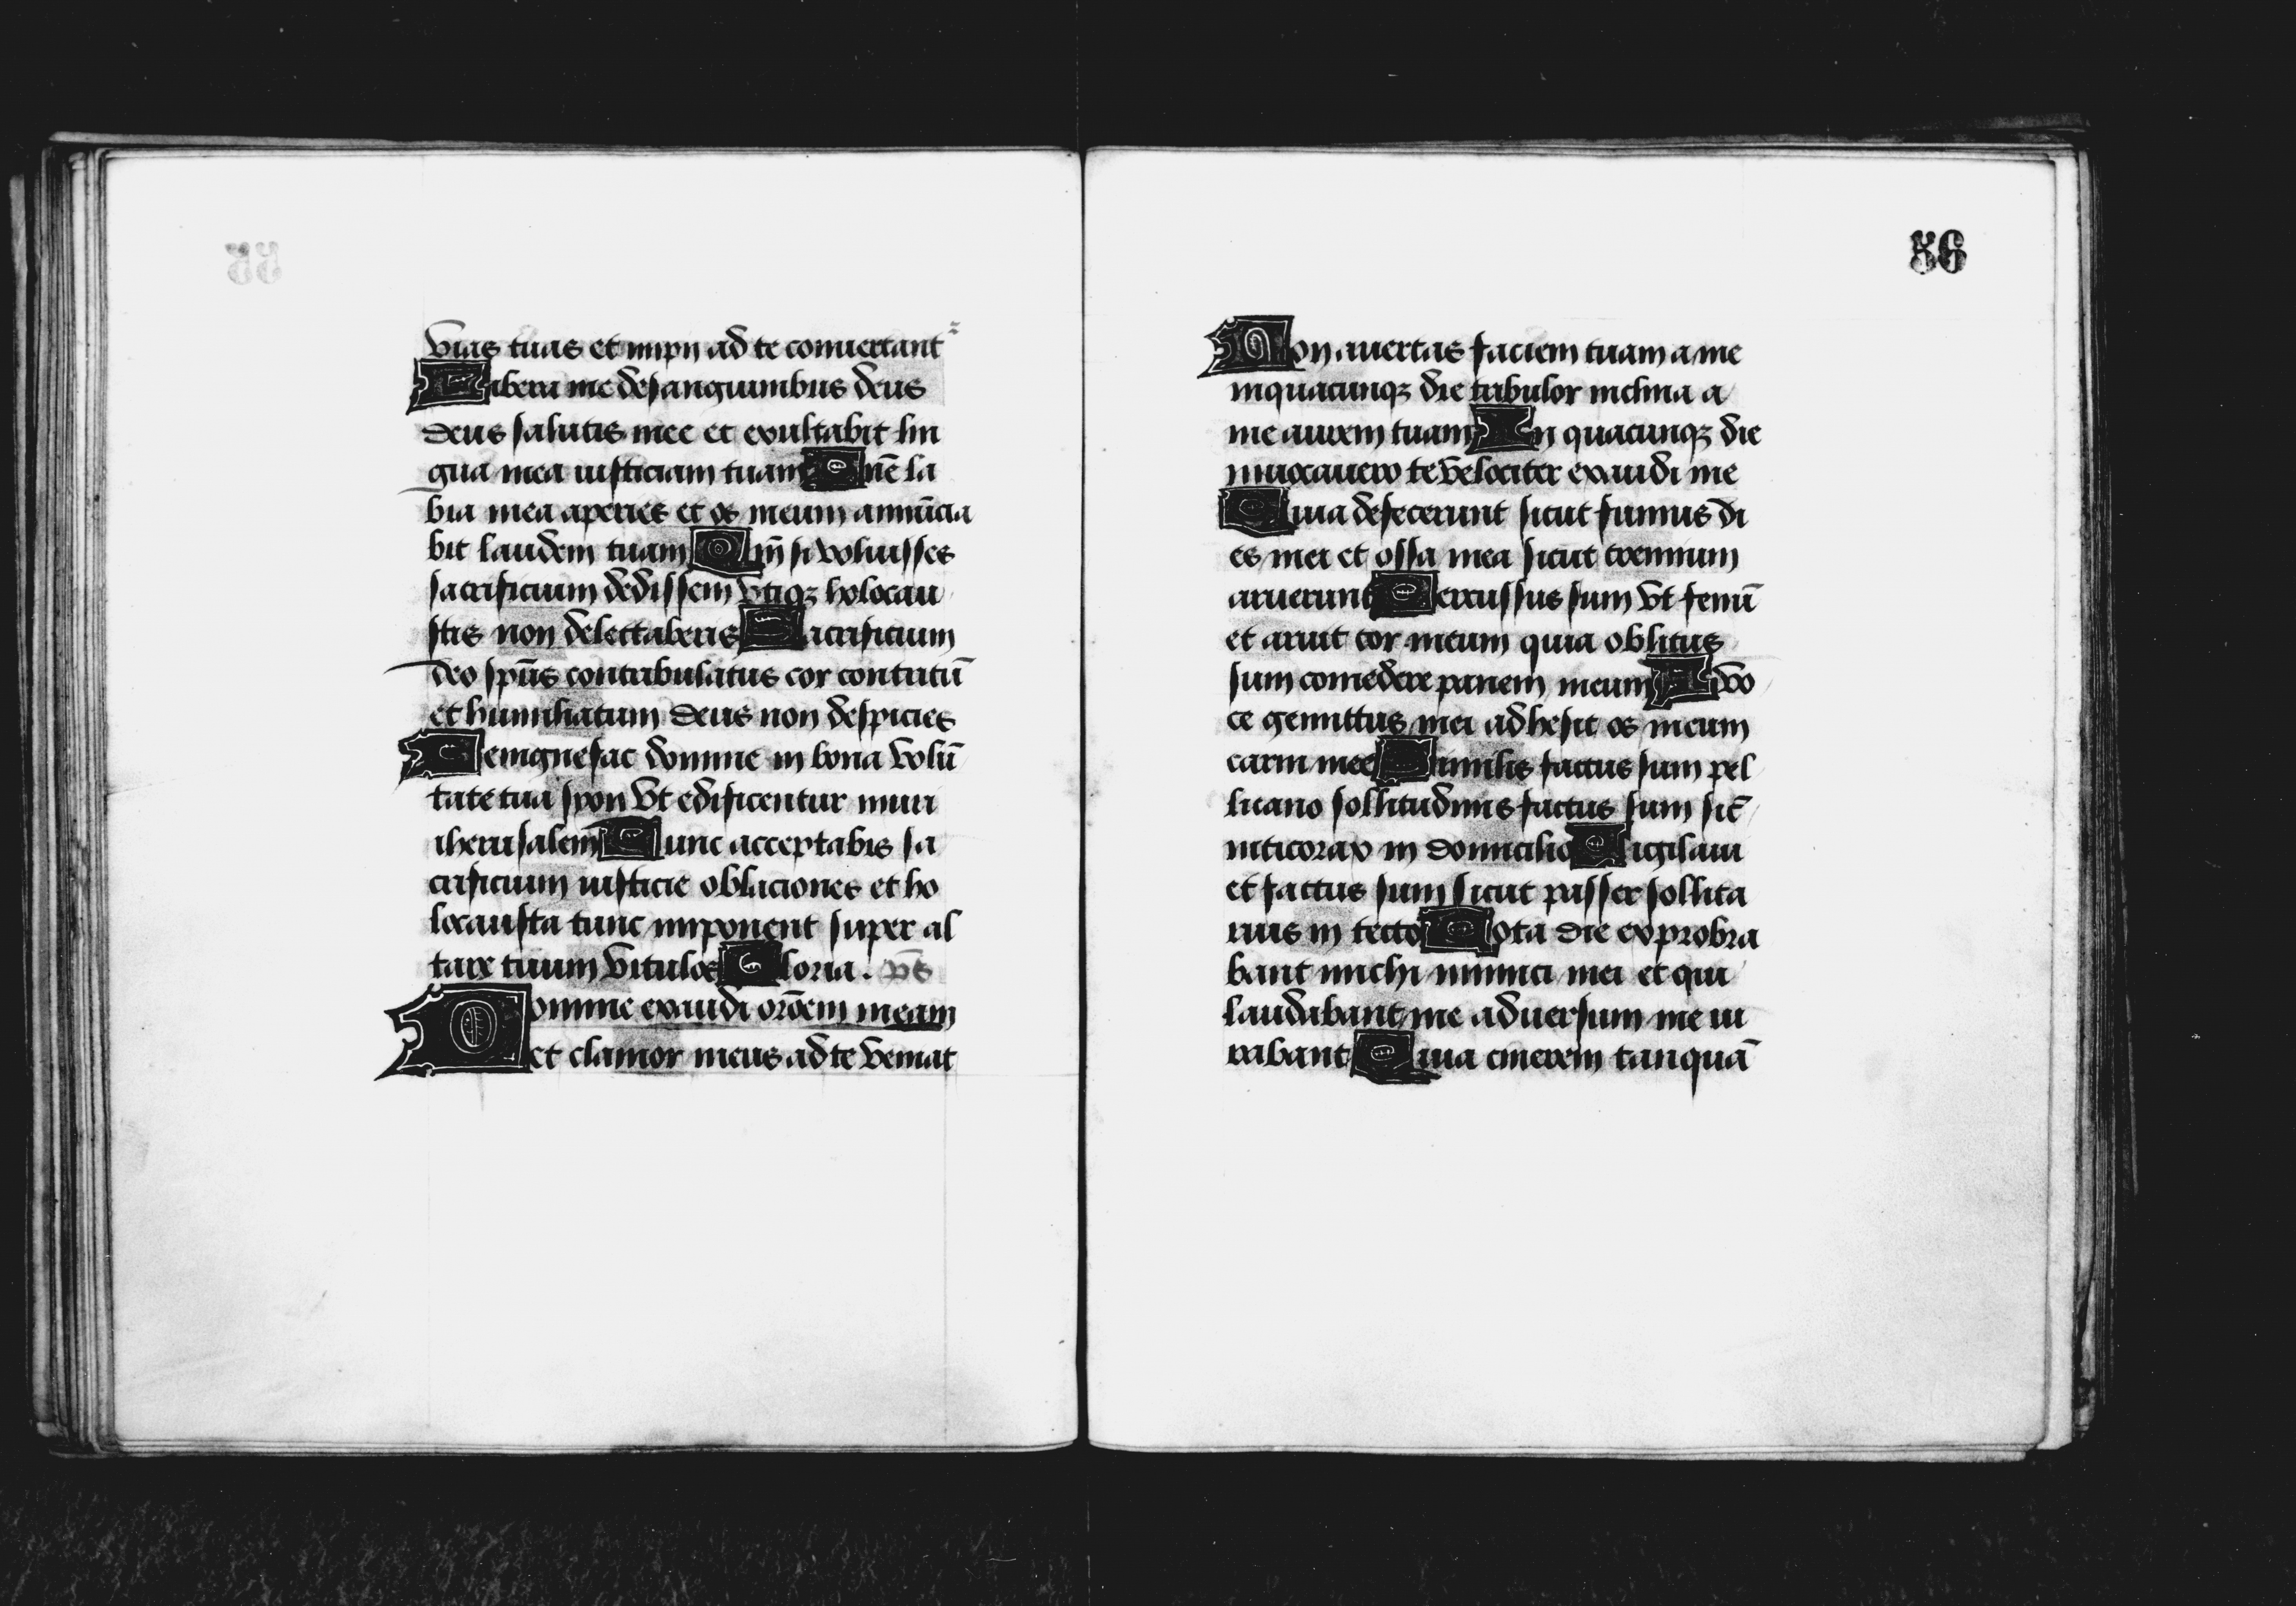 vias tuas et impii ad te conuertant᷑
Libera me de sanguinibus deus
deus salutis mee et exultabit lin
gua mea iusticiam tuam Dn̄e la
bia mea aperies et os meum annūcia
bit laudem tuam Qm̄ si voluisses
sacrificium dedissem vtiqꝫ holocau
stis non delectaberis Sacrificium
deo sp̄us contribulatus cor contritū
et humiliatum deus non despicies
Benigne fac domine in bona volū
tate tua syon vt edificentur muri
iherusalem Tunc acceptabis sa
crificium iusticie oblaciones et ho
locausta tunc imponent super al
tare tuum vitulos Gloria . ps̄
Domine exaudi orōem meam
et clamor meus ad te veniat
56
Non auertas faciem tuam a me
inquacunqꝫ die tribulor inclina a
me aurem tuam In quacunqꝫ die
inuocauero te velociter exaudi me
Quia defecerunt sicut fumus di
es mei et ossa mea sicut cremium
aruerunt Percussus sum vt fenū
et aruit cor meum quia oblitus
sum comedere panem meum A vo
ce gemittus mei adhesit os meum
carni mee Similis factus sum pel
licano sollitudinis factus sum sic̄
niticorax in domicilio Vigilaui
et factus sum sicut passer sollita
rius in tecto Tota die exprobra
bant michi inimici mei et qui
laudabant me aduersum me iu
rabant Quia cinerem tanquā